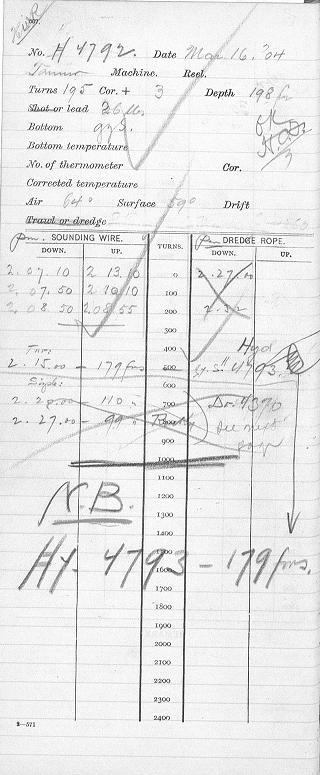 No. H 4792. Date Mar. 16, '04
Tanner Machine. Reel.
Turns 195 Cor. + 3 Depth 198 fms
Shot or lead 26 lbs
Bottom gy S.
ok
Bottom temperature
No. of thermometer Cor.
Corrected temperature
Air 64° Surface 69° Drift
Trawl or dredge
pm. SOUNDING WIRE. TURNS. pm DREDGE ROPE.
DOWN. UP. DOWN. UP.
2.07.10 2 13.10 0 2.27.00
2.07.50 2 10 10 100
2.08.50 2 08 55 200 2.32
300
400 Hyd
2.15.00 - 179 fms 500 4793.
Single: 600
2.20.00 - 110 " 700 Dr. 4370
2.27.00 - 99 " Rocky 800 See next
900 page
1000
1100
N.B. 1200
1300
1400
Hy- 4793 - 179 fms.
1500
1600
1700
1800
1900
2000
2100
2200
2300
2400
2—571